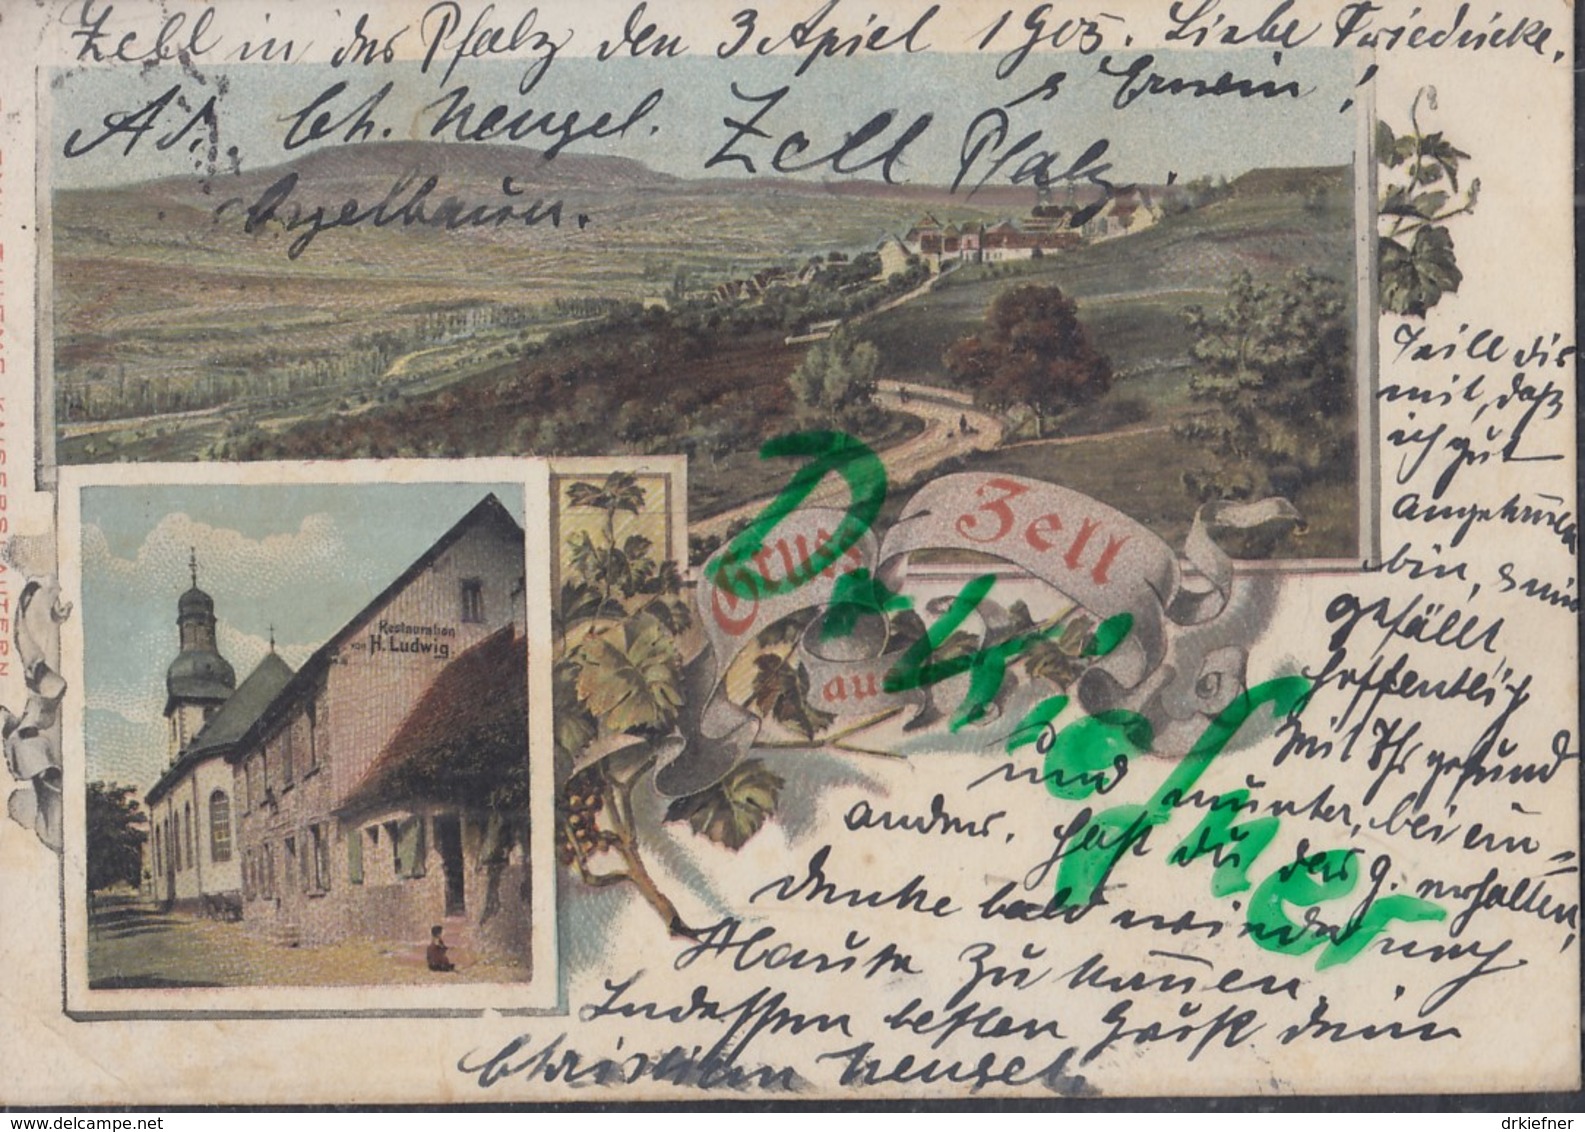 Zell in der Pfalz den 3 April 1905. Liebe Friedricke,
& Erwin!
Ad. Ch. Neugel. Zell Pfalz.
Orgelbauer.
Teill dir
mit, daß
ich gut
angekommen
bin, & mir
gefällt
hoffentlich
seit Ihr gesund
und munter, bei ein=
ander. Hast du das G. erhalten,
denke bald wieder nach
Hause zu kommen.
Indessen besten Gruß dein
Christian Neugel.
Gruss
aus
Zell
Restauration
von H. Ludwig.
THIEME KAISERSLAUTERN
Drkiefner
www.delcampe.net
drkiefner